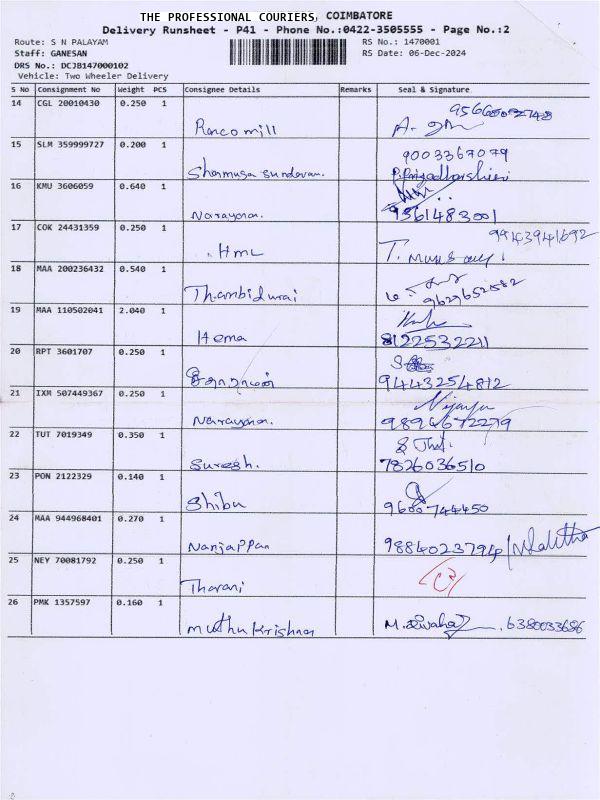 THE PROFESSIONAL COURIERS, COIMBATORE
Delivery Runsheet - P41 - Phone No.:0422-3505555 - Page No.:2
Route: S N PALAYAM RS No.: 1470001
Staff: GANESAN RS Date: 06-Dec-2024
DRS No.: DCJB147000102
Vehicle: Two Wheeler Delivery
S No Consignment No Weight PCS Consignee Details Remarks Seal & Signature
14 CGL 20010430 0.250 1
15 SLM 359999727 0.200 1
9003367079
16 KMU 3606059 0.640 1
Narayana. 9361483001
17 COK 24431359 0.250 1
HML
18 MAA 200236432 0.540 1
Thambidurai 9629652582
19 MAA 110502041 2.040 1
Hema 8122532211
20 RPT 3601707 0.250 1
9443254812
21 IXM 507449367 0.250 1
Narayana.
22 TUT 7019349 0.350 1
Suresh. 7826036510
23 PON 2122329 0.140 1
Shibu 9600744450
24 MAA 944968401 0.270 1
Nanjappan 9884023794
25 NEY 70081792 0.250 1
Tharani
26 PMK 1357597 0.160 1
muthu Krishnan 6380033686